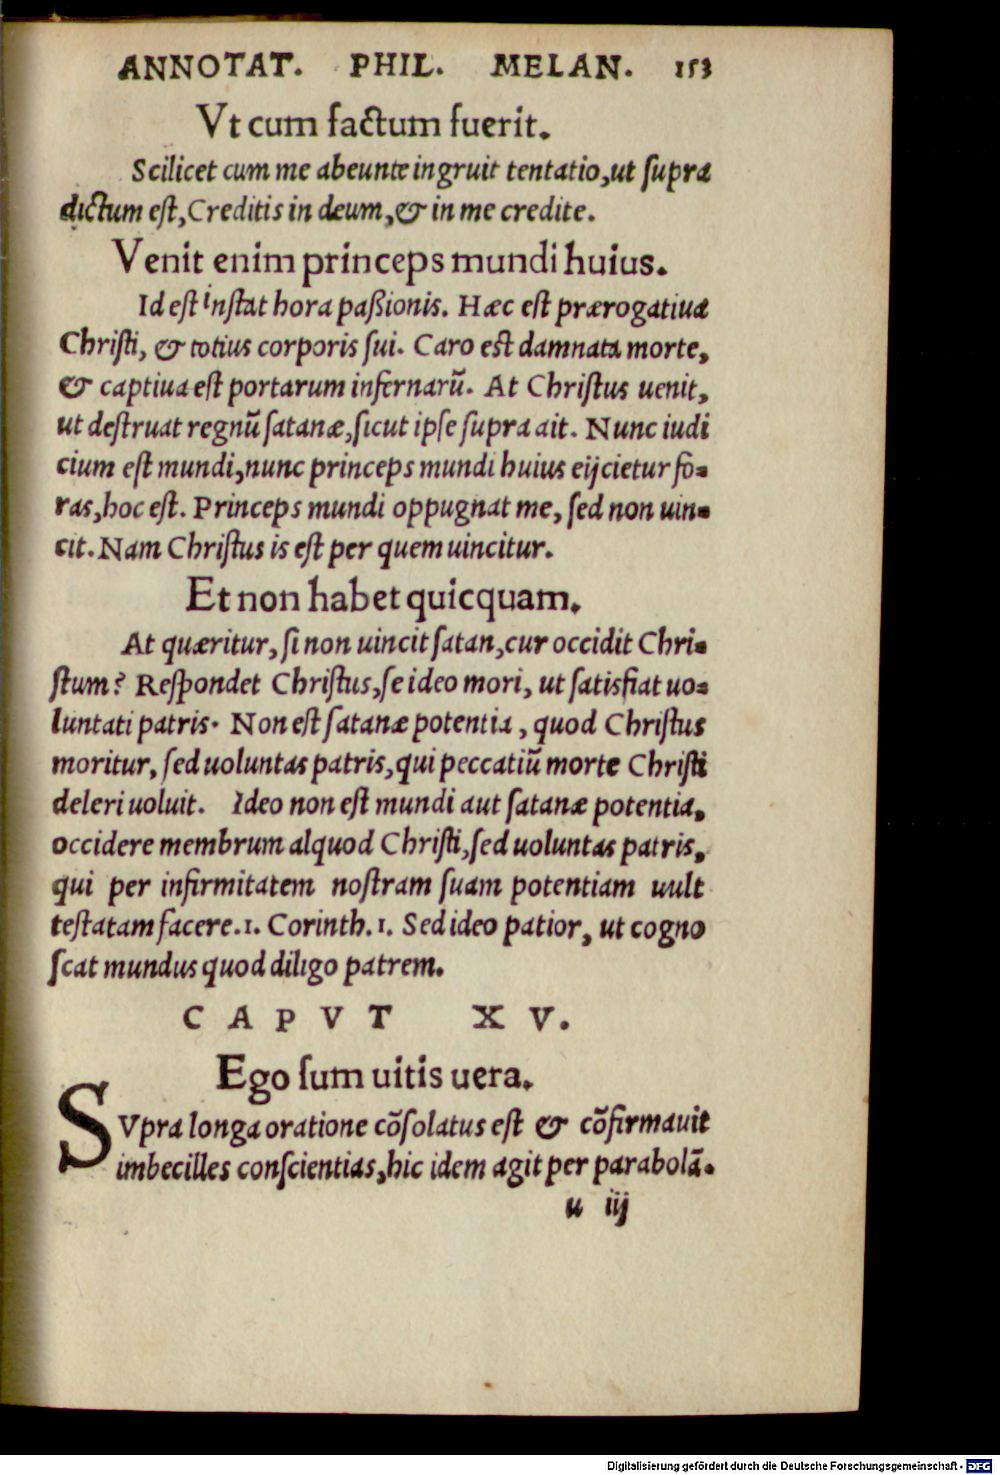 ANNOTAT. PHIL. MELAN. 153
Vt cum factum fuerit.
Scilicet cum me abeunte ingruit tentatio, ut ſupra
dictum eſt, Creditis in deum, & in me credite.
Venit enim princeps mundi huius.
Id eſt inſtat hora paßionis. Hæc eſt prærogatiua
Chriſti, & totius corporis ſui. Caro eſt damnata morte,
& captiua eſt portarum infernarũ. At Chriſtus uenit,
ut deſtruat regnũ ſatanæ, ſicut ipſe ſupra ait. Nunc iudi
cium eſt mundi, nunc princeps mundi huius eijcietur fo-
ras, hoc eſt. Princeps mundi oppugnat me, ſed non uin-
cit. Nam Chriſtus is eſt per quem uincitur.
Et non habet quicquam.
At quæritur, ſi non uincit ſatan, cur occidit Chri-
ſtum? Reſpondet Chriſtus, ſe ideo mori, ut ſatisfiat uo-
luntati patris. Non eſt ſatanæ potentia, quod Chriſtus
moritur, ſed uoluntas patris, qui peccatiũ morte Chriſti
deleri uoluit. Ideo non eſt mundi aut ſatanæ potentia,
occidere membrum alquod Chriſti, ſed uoluntas patris,
qui per infirmitatem noſtram ſuam potentiam uult
teſtatam facere. 1. Corinth. 1. Sed ideo patior, ut cogno
ſcat mundus quod diligo patrem.
CAPVT XV.
Ego ſum uitis uera.
SVpra longa oratione cõſolatus eſt & cõfirmauit
imbecilles conſcientias, hic idem agit per parabolã.
u iij
Digitalisierung gefördert durch die Deutsche Forschungsgemeinschaft - DFG